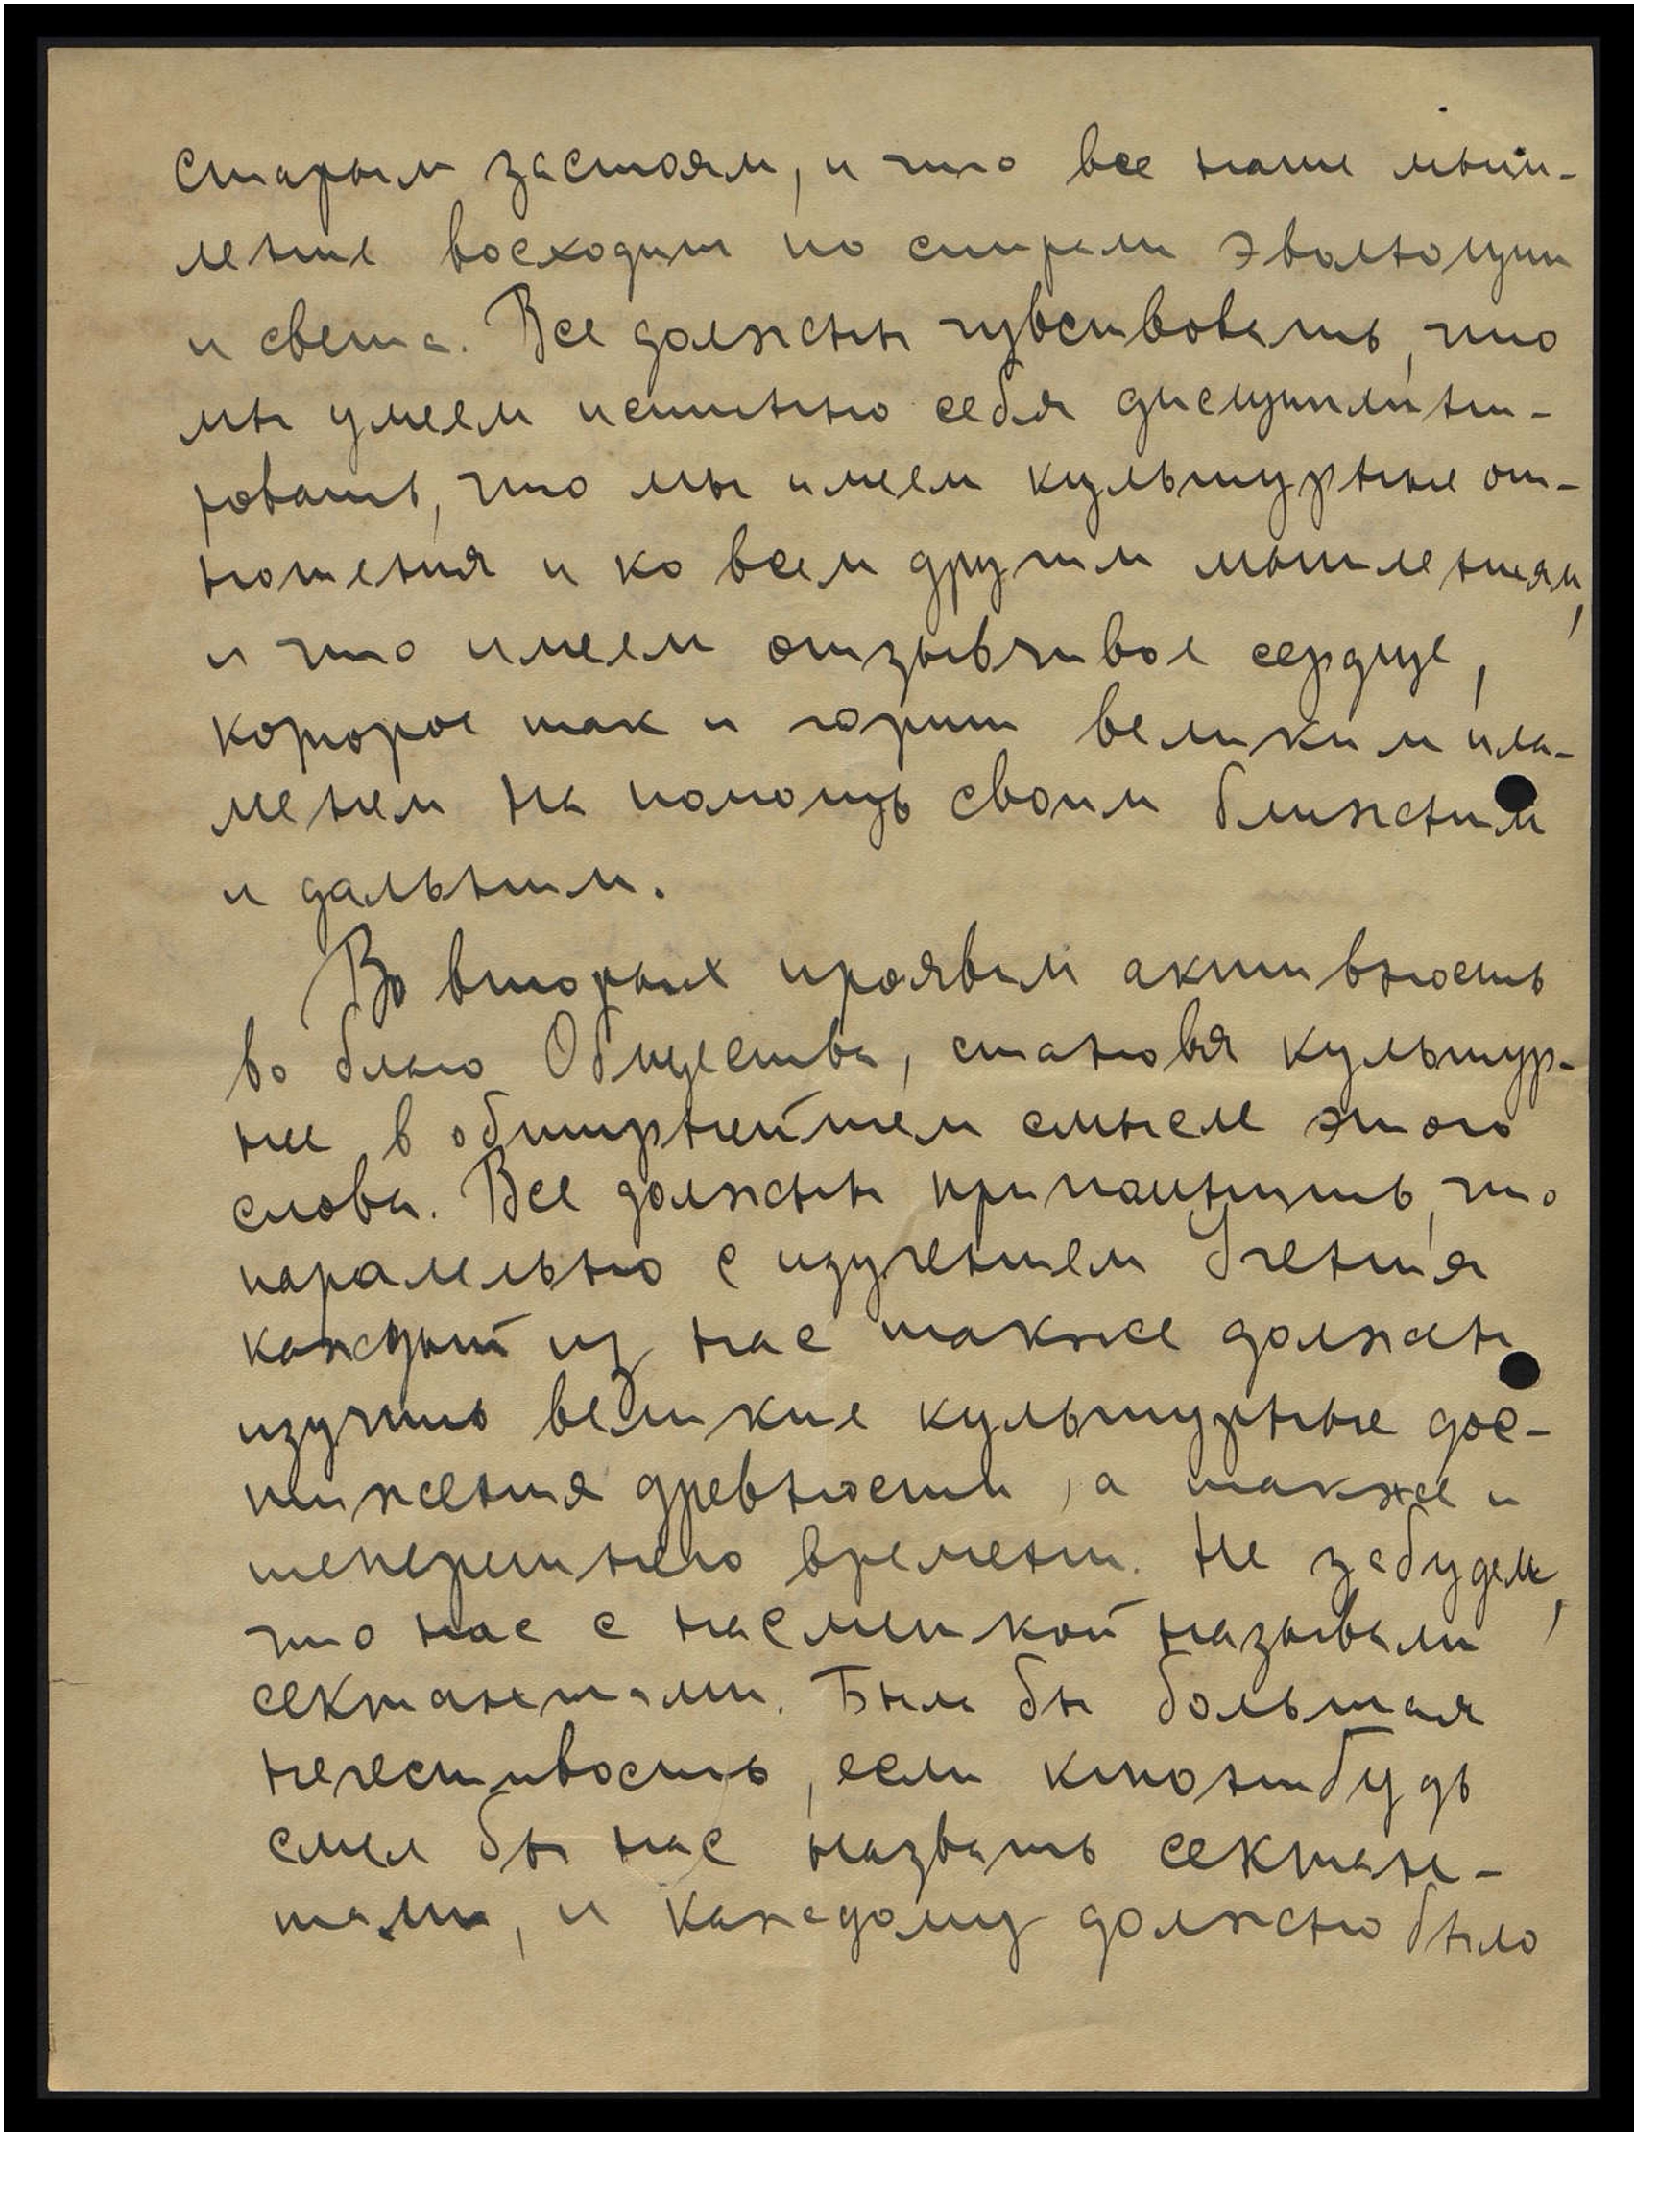 старым застоям, и что все наше мыш-
ление восходит по спирали эволюции
и света. Все должны чувствовать, что
мы умеем истинно себя дисциплини-
ровать, что мы имеем культурные от-
ношения и ко всем другим мышлениям,
и что имеем отзывчивое сердце,
корторое так и горит великим пла-
менем на помощь своим ближним
и дальним.
Во вторых проявим активность
во благо Общества, становя культур-
нее в обширнейшем смысле этого
слова. Все должны припомнить, что
паралельно с изучением Учения
каждый из нас также должен
изучить великие культурные дос-
тижения древности, а также и
теперешнего времени. Не забудем,
что нас с насмешкой называли
сектантами. Была бы большая
нечестивость, если ктонибудь
смел бы нас назвать сектан-
тами, и каждому должно было